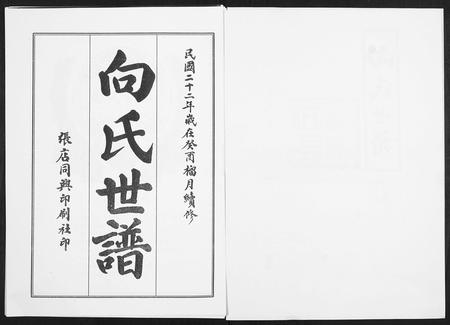 民國二十二年歲在癸酉榴月續修
向氏世譜
張店同興印刷社印